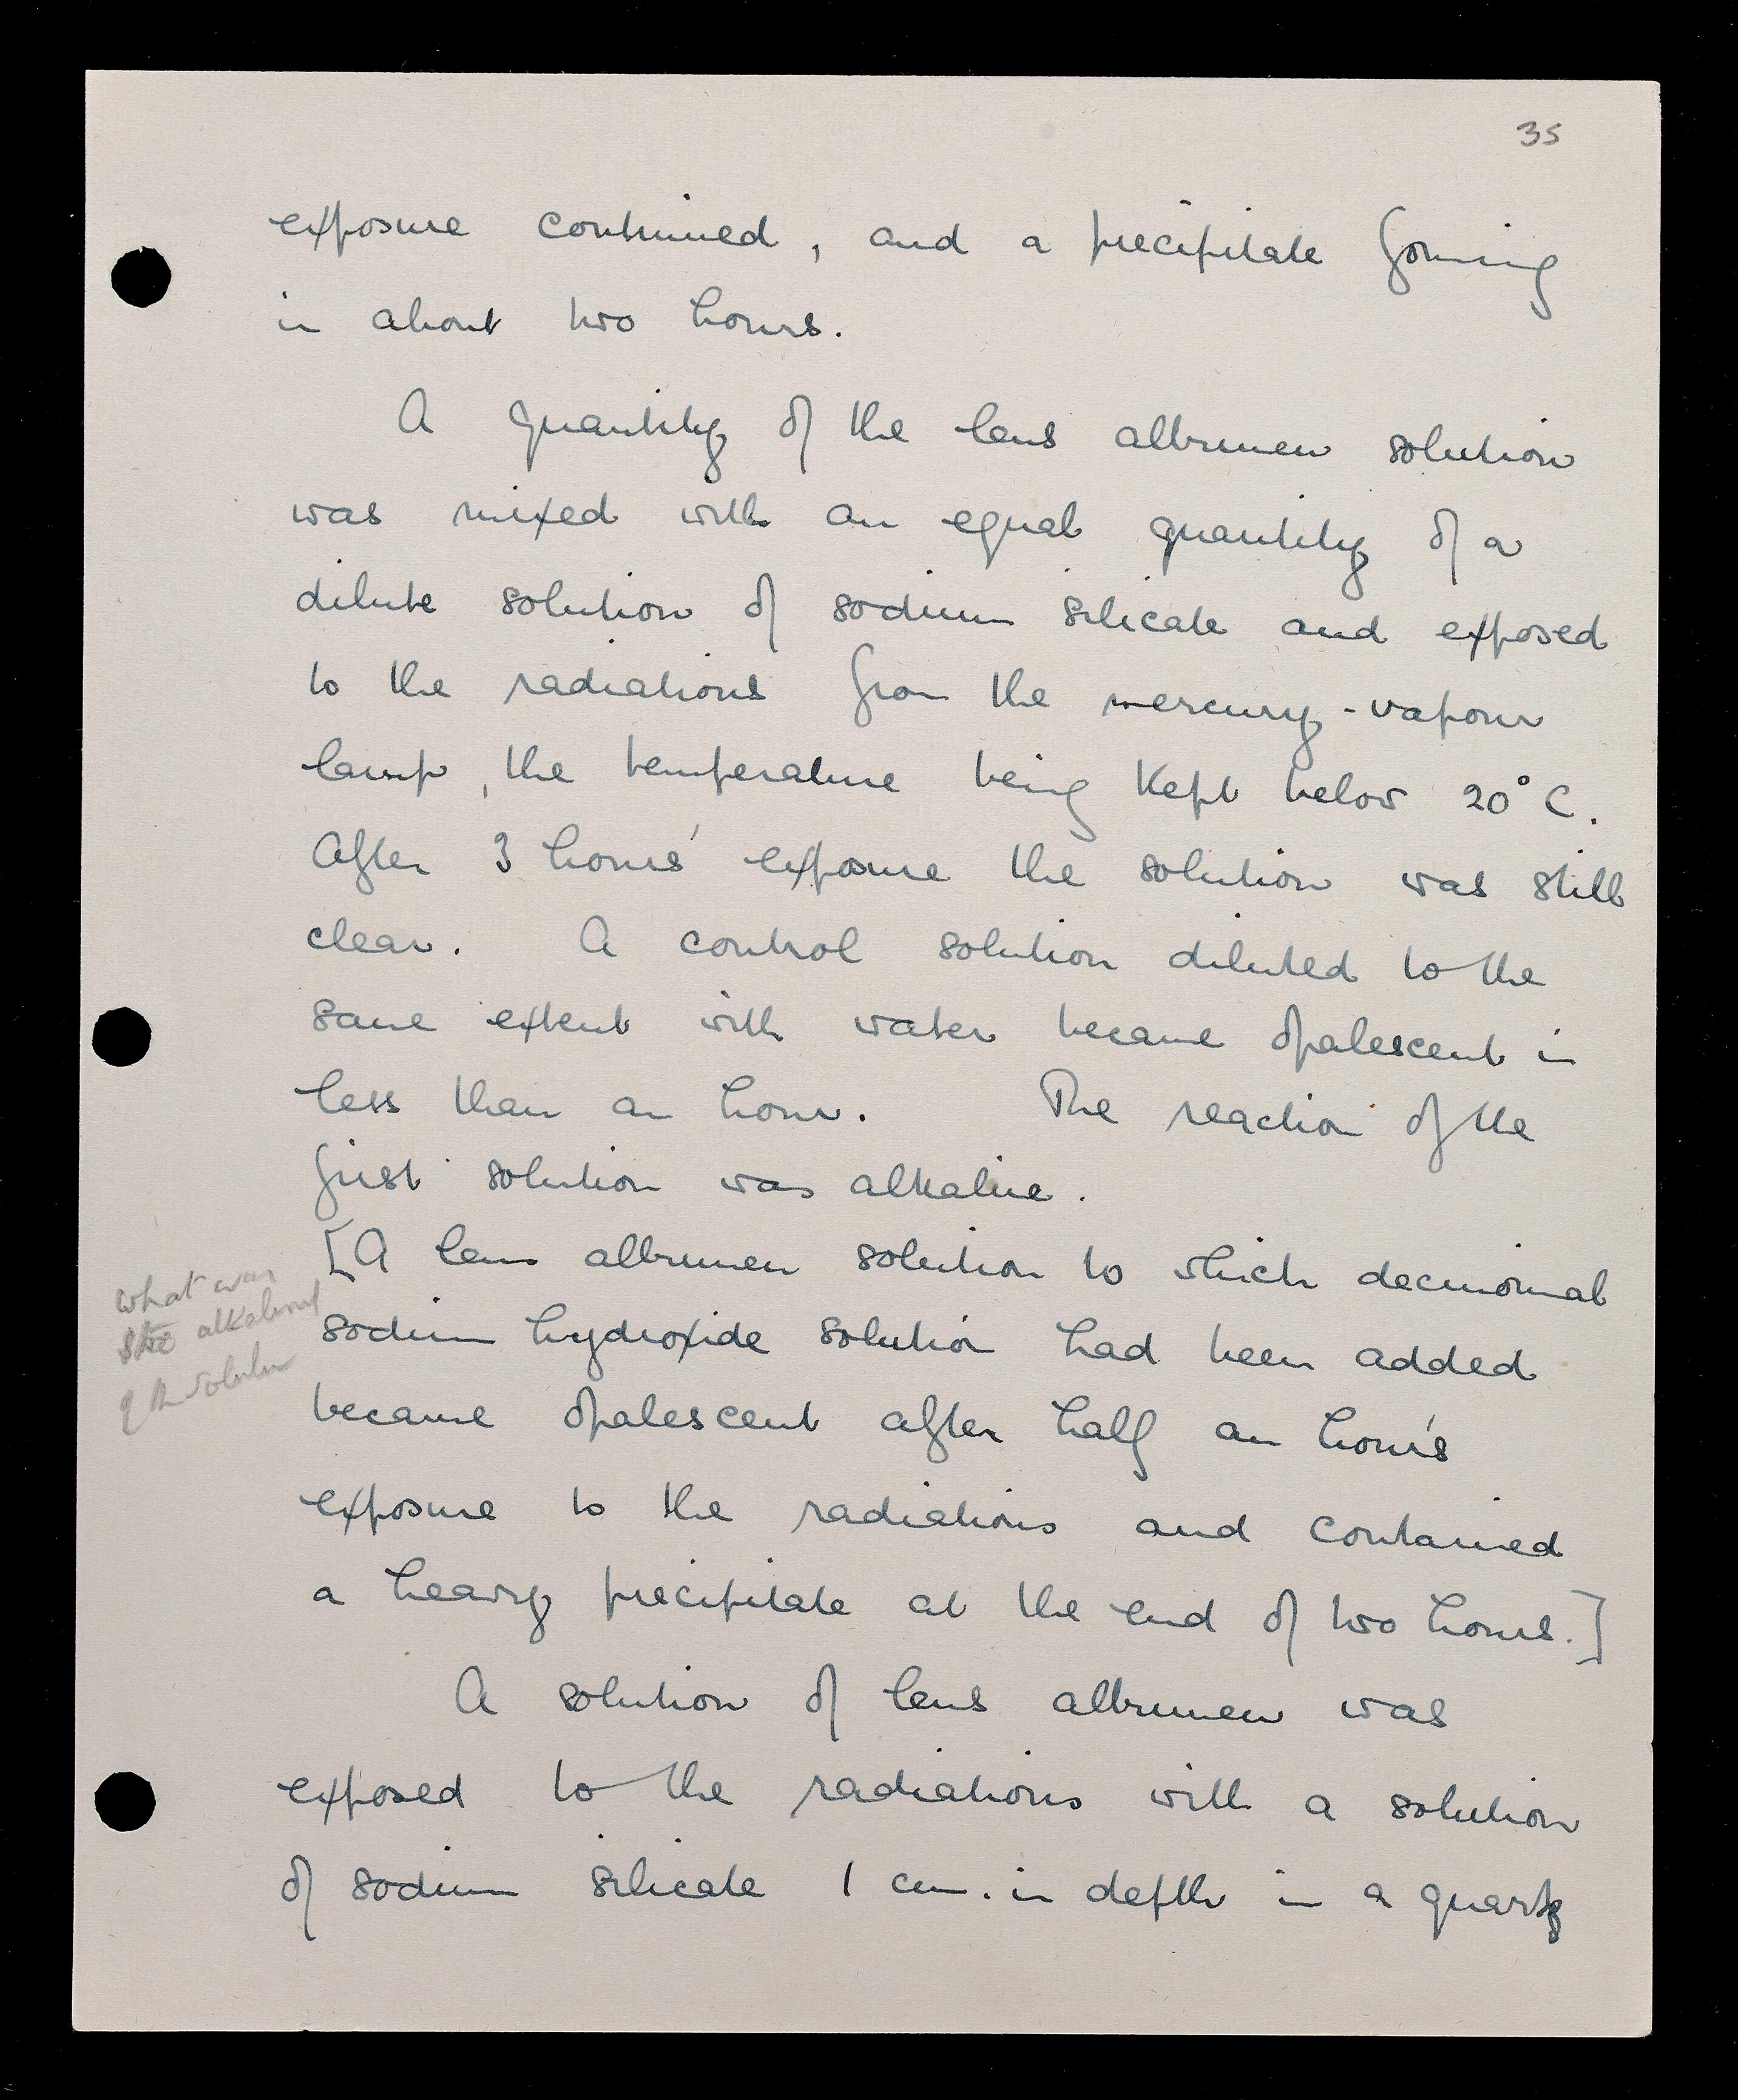 35
exposure continued, and a precipitate forming
in about two hours.
A quantity of the lens albumen solution
was mixed with an equal quantity of a
dilute solution of sodium silicate and exposed
to the radiations from the mercury-vapour
lamp, the temperature being kept below 20°C.
After 3 hours' exposure the solution was still
clear. A control solution diluted to the
same extent with water became opalescent in
less than an hour. The reaction of the
first solution was alkaline.
[A lens albumen solution to which decinormal
sodium hydroxide solution had been added
became opalescent after half an hour's
exposure to the radiations and contained
a heavy precipitate at the end of two hours.]
what was
the
of the solution
A solution of lens albumen was
exposed to the radiations with a solution
of sodium silicate 1 cm. in depth in a quartz